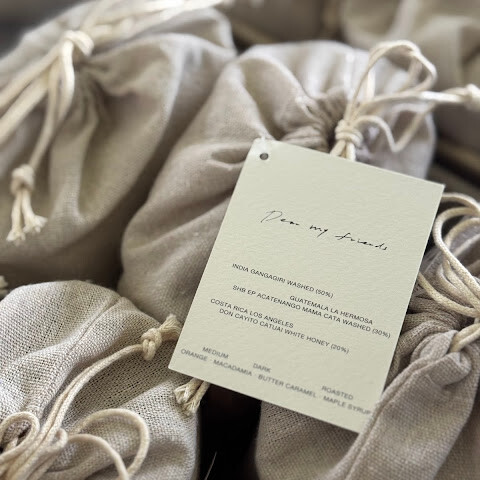 Dear my friends
INDIA GANGAGIRI WASHED (50%)
GUATEMALA LA HERMOSA
SHB EP ACATENANGO MAMA CATA WASHED (30%)
COSTA RICA LOS ANGELES
DON CAYITO CATUAI WHITE HONEY (20%)
MEDIUM DARK ROASTED
ORANGE · MACADAMIA · BUTTER CARAMEL · MAPLE SYRUP